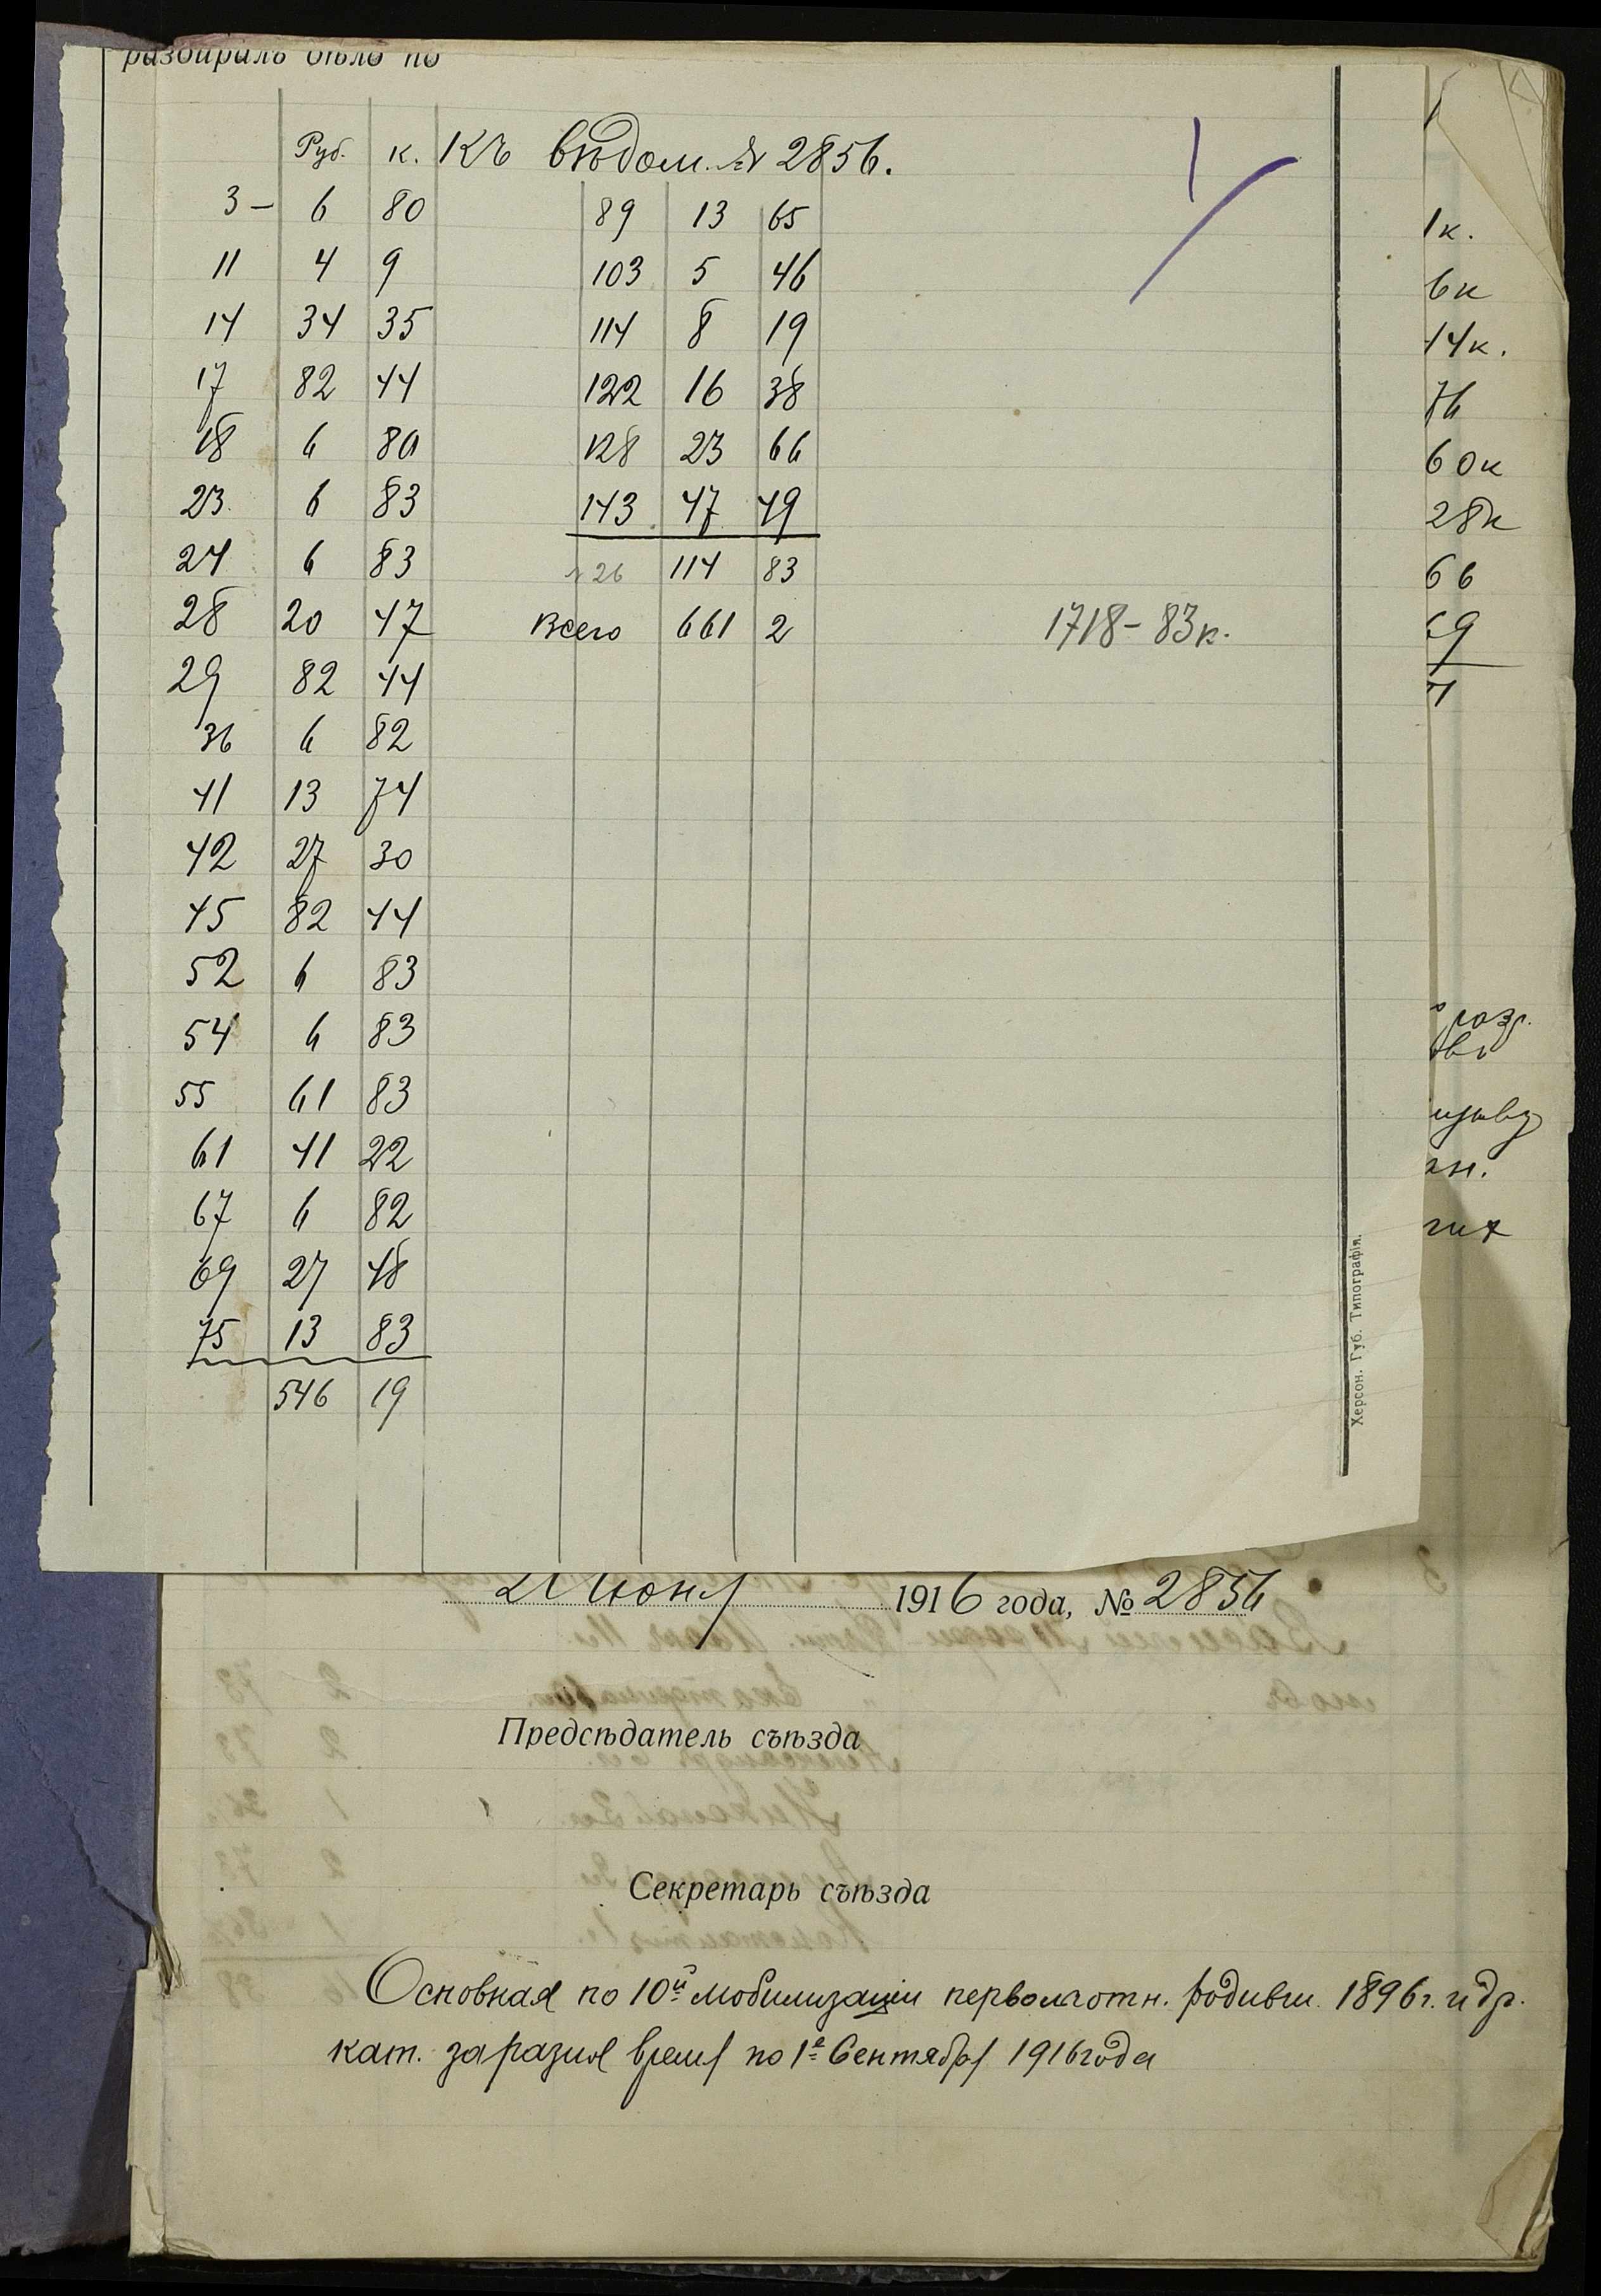 разбиралъ дѣло по
Руб. к. Къ вѣдом. № 2856.
3 – 6 80 89 13 65
11 4 9 103 5 46
14 34 35 114 8 19
17 82 44 122 16 38
18 6 80 128 23 66
23 6 83 143 47 49
24 6 83 26 114 83
28 20 47 Всего 661 2 1718 – 83 к.
29 82 44
36 6 82
41 13 74
42 27 30
45 82 44
52 6 83
54 6 83
55 61 83
61 41 22
67 6 82
69 27 48
75 13 83
546 19
1к.
6к
14к.
76
60к
28к
66
69
Херсон. Губ. Типографія.
21 Июня 1916 года, № 2856
Предсѣдатель съѣзда
Секретарь съѣзда
Основная по 10й мобилизаціи перволготн. родивш. 1896 г. и др.
кат. за разное время по 1е Сентября 1916 года